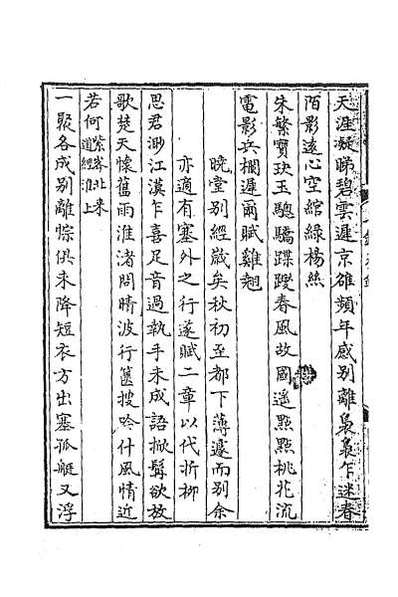 天涯凝睇碧雲遲京雒頻年感別離裊裊乍迷春
陌影遠心空綰綠楊絲
朱繁寶玦玉驄驕蹀躞春風故國遙點點桃花流
電影兵欄遲爾賦雞翹
曉堂別經歲矣秋初至都下薄遽而別余
亦適有塞外之行遂賦二章以代折柳
思君渺江漢乍喜足音過執手未成語掀髯欲放
歌楚天懷舊雨淮渚問晴波行篋搜吟什風情近
若何紫峯北來道經淮上
一聚各成別離悰俱未降短衣方出塞孤艇又浮